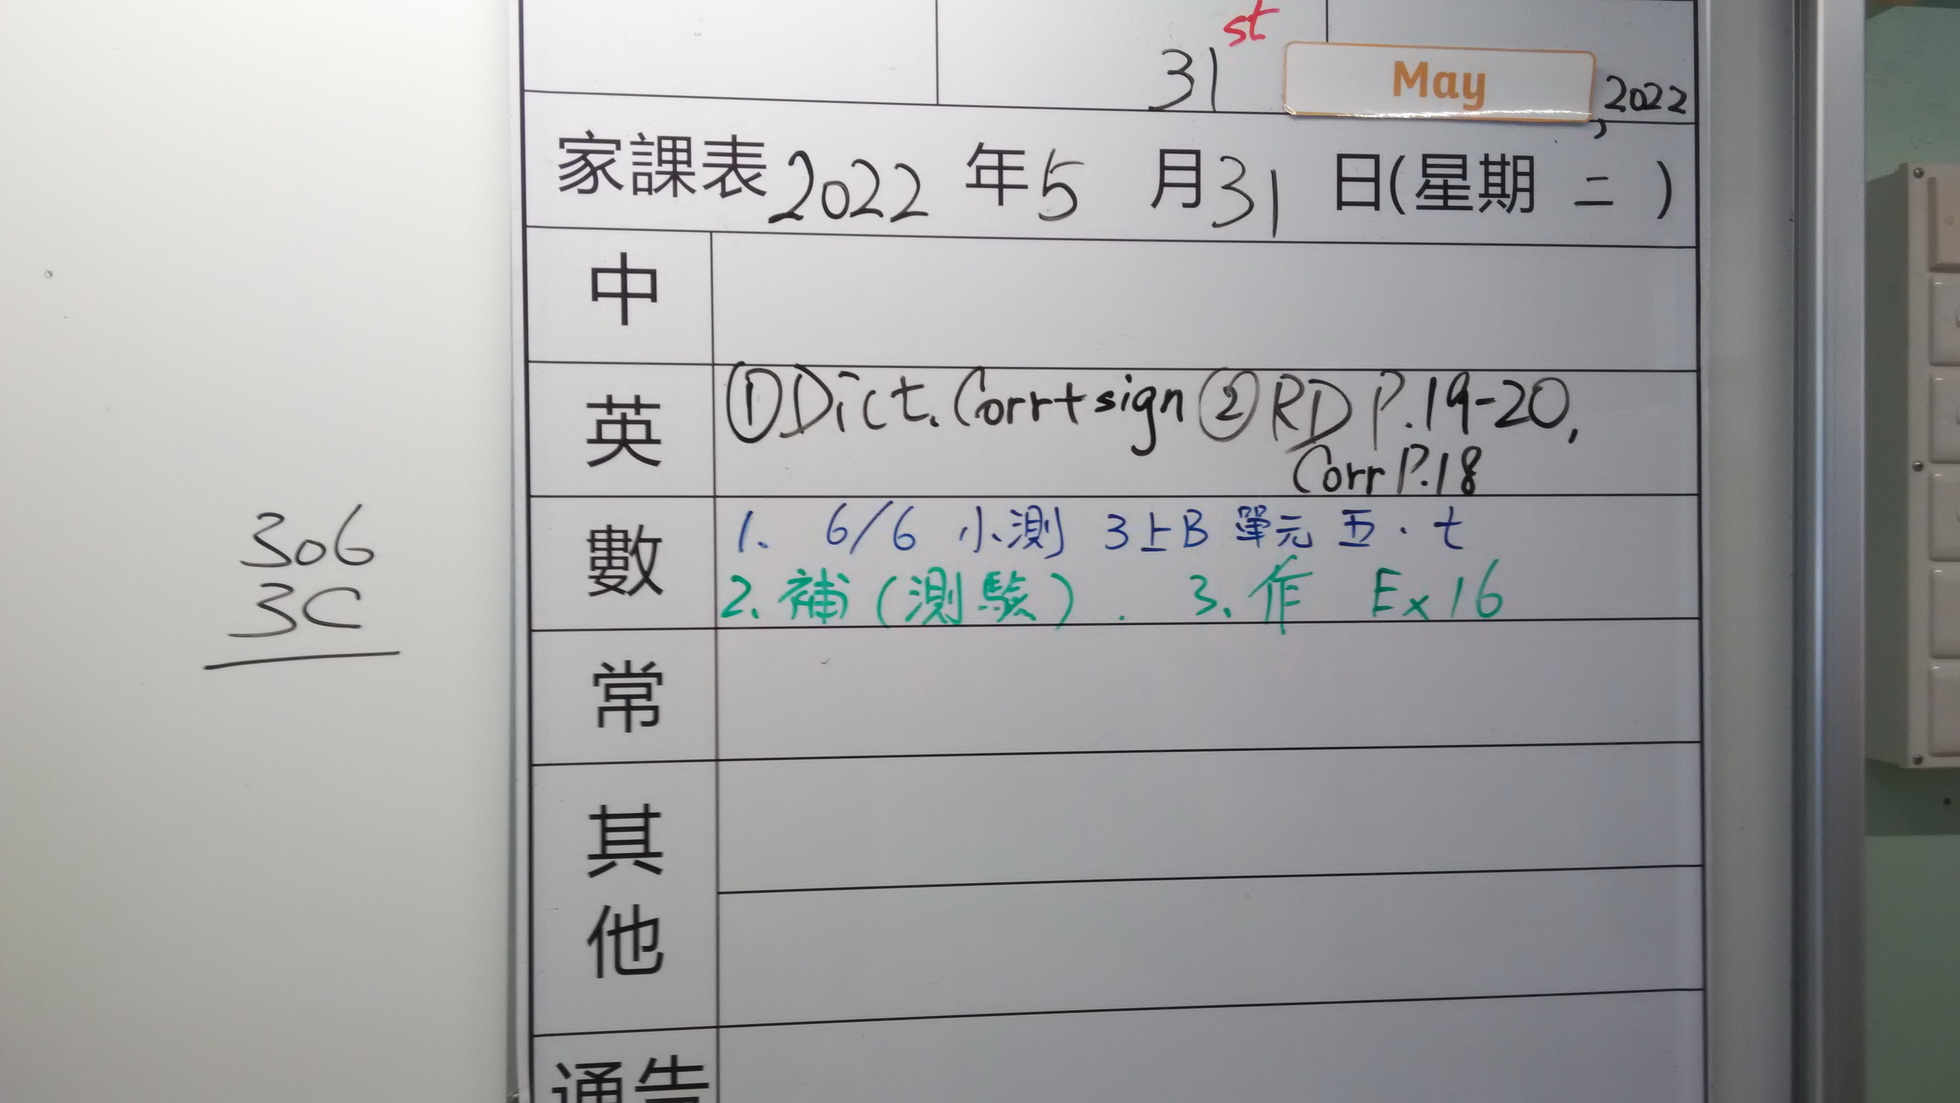 31st May, 2022
家課表 2022 年 5 月 31 日(星期 二 )
中
英 ①Dict. Corr+sign ②RD P.19-20,
Corr P.18
數 1. 6/6 小測 3上B 單元 五.七
2. 補(測驗). 3. 作 Ex16
常
其他
通告
306
3C